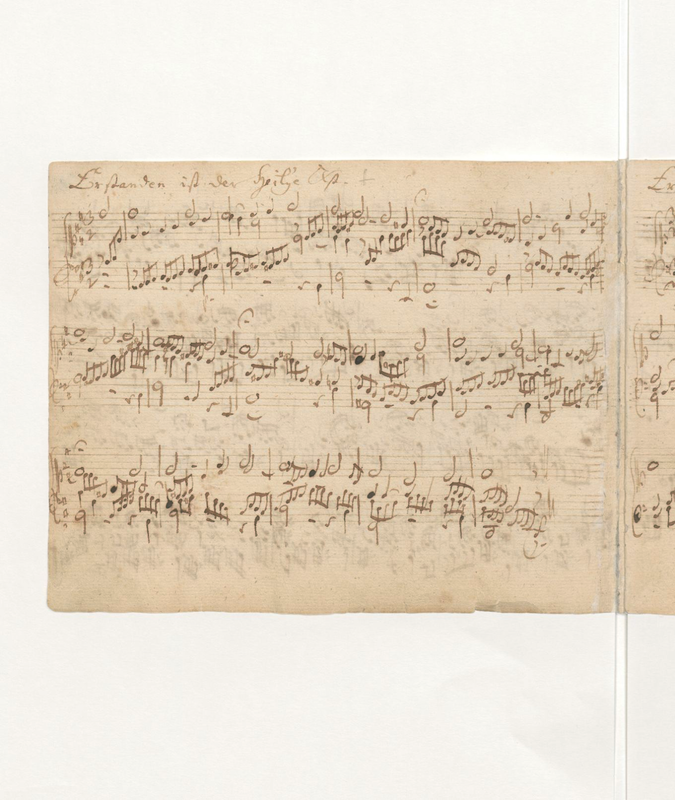 Erstanden ist der heilge Xst.
Er